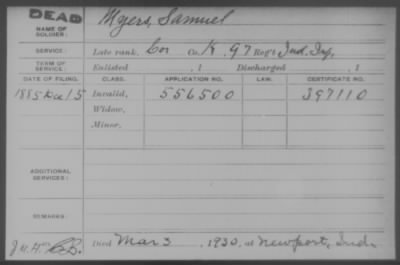 DEAD
NAME OF SOLDIER: Myers, Samuel
SERVICE: Late rank, Cor Co. K, 97 Reg't Ind. Inf.
TERM OF SERVICE: Enlisted , 1 Discharged , 1
DATE OF FILING. CLASS. APPLICATION NO. LAW. CERTIFICATE NO.
1885 Dec 15 Invalid, 556500 397110
Widow,
Minor,
ADDITIONAL SERVICES:
REMARKS:
Died Mar 3 1930, at Newport, Ind.